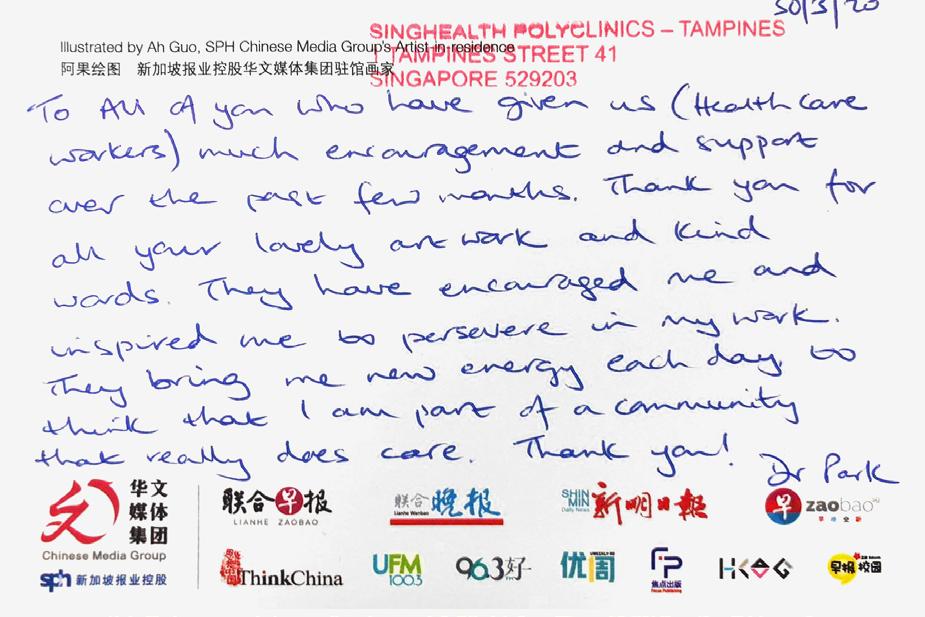 30/3/20
SINGHEALTH POLYCLINICS – TAMPINES
1 TAMPINES STREET 41
SINGAPORE 529203
Illustrated by Ah Guo, SPH Chinese Media Group's Artist-in-residence
阿果绘图 新加坡报业控股华文媒体集团驻馆画家
To All of you who have given us (Healthcare
workers) much encouragement and support
over the past few months. Thank you for
all your lovely artwork and kind
words. They have encouraged me and
inspired me to persevere in my work.
They bring me new energy each day, to
think that I am part of a community
that really does care. Thank you!
Dr Park
华文媒体集团
Chinese Media Group
sph 新加坡报业控股
联合早报
LIANHE ZAOBAO
联合晚报
Lianhe Wanbao
SHIN MIN Daily News 新明日报
早 zaobao
ThinkChina
UFM 100.3
96.3好
优周
FP
焦点出版
Focus Publishing
早报校园